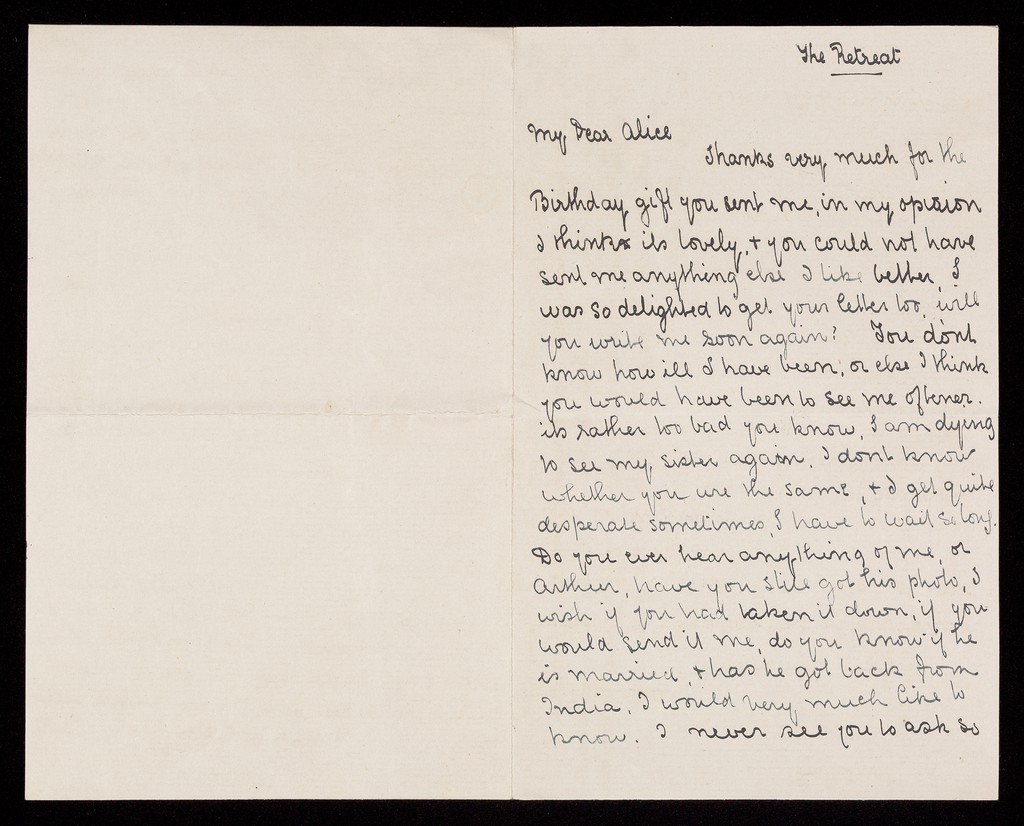 The Retreat
My Dear Alice
Thanks very much for the
Birthday gift you sent me, in my opinion
I think its lovely, + you could not have
sent me anything else I like better, I
was so delighted to get your letter too, will
you write me soon again? You dont
know how ill I have been, or else I think
you would have been to see me oftener.
its rather too bad you know, I am dying
to see my sister again. I dont know
whether you are the same, + I get quite
desperate sometimes, I have to wait so long.
Do you ever hear anything of me, or
Arthur, have you still got his photo, I
wish if you had taken it down, if you
would send it me, do you know if he
is married, + has he got back from
India, I would very much like to
know. I never see you to ask so